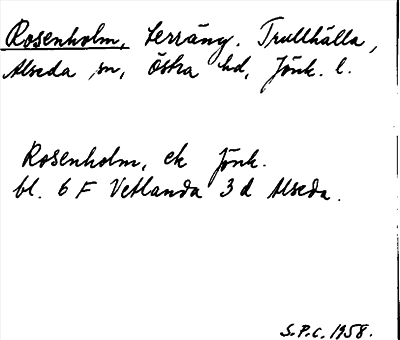 Rosenholm, terräng. Trullhälla,
Alseda sn, Östra hd, Jönk. l.
Rosenholm, ek Jönk.
bl. 6 F Vetlanda 3 d Alseda.
S.P.C. 1958.